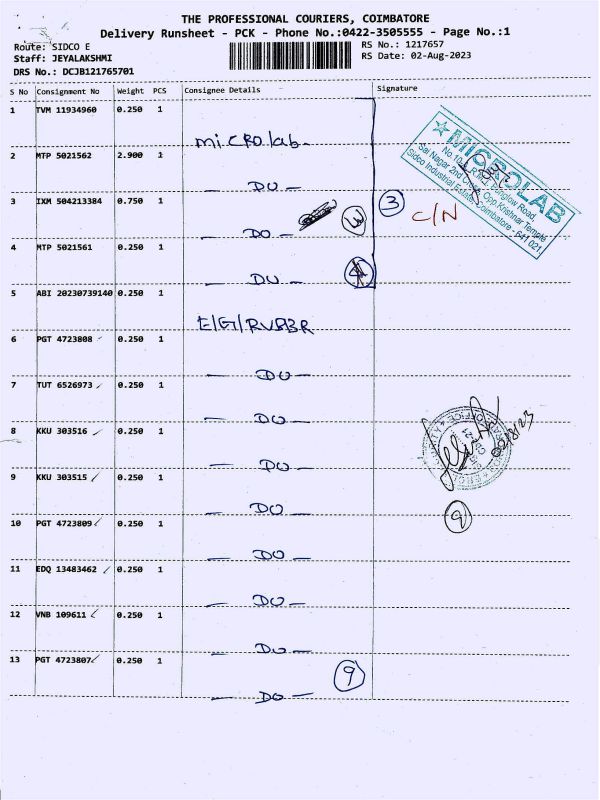 THE PROFESSIONAL COURIERS, COIMBATORE
Delivery Runsheet - PCK - Phone No.:0422-3505555 - Page No.:1
Route: SIDCO E
Staff: JEYALAKSHMI
DRS No.: DCJB121765701
RS No.: 1217657
RS Date: 02-Aug-2023
S No Consignment No Weight PCS Consignee Details Signature
1 TVM 11934960 0.250 1
Microlab
2 MTP 5021562 2.900 1
— DO —
3 IXM 504213384 0.750 1
— DO —
4 MTP 5021561 0.250 1
— DO —
3
C/N
MICROLAB
Sai Nagar 2nd Cross, Opp.Krishnar Temple
Sidco Industrial Estate, Coimbatore - 641 021.
5 ABI 20230739140 0.250 1
6 PGT 4723808 0.250 1
— DO —
7 TUT 6526973 0.250 1
— DO —
8 KKU 303516 0.250 1
— DO —
9 KKU 303515 0.250 1
— DO —
10 PGT 4723809 0.250 1
— DO —
11 EDQ 13483462 0.250 1
— DO —
12 VNB 109611 0.250 1
— DO —
13 PGT 4723807 0.250 1
— DO —
9
02/8/23
9